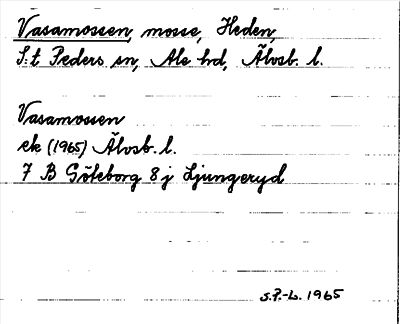 Vasamossen, mosse, Heden,
S:t Peders sn, Ale hd, Älvsb. l.
Vasamossen
ek (1965) Älvsb. l.
7 B Göteborg 8 j Ljungeryd
S.P.-L. 1965